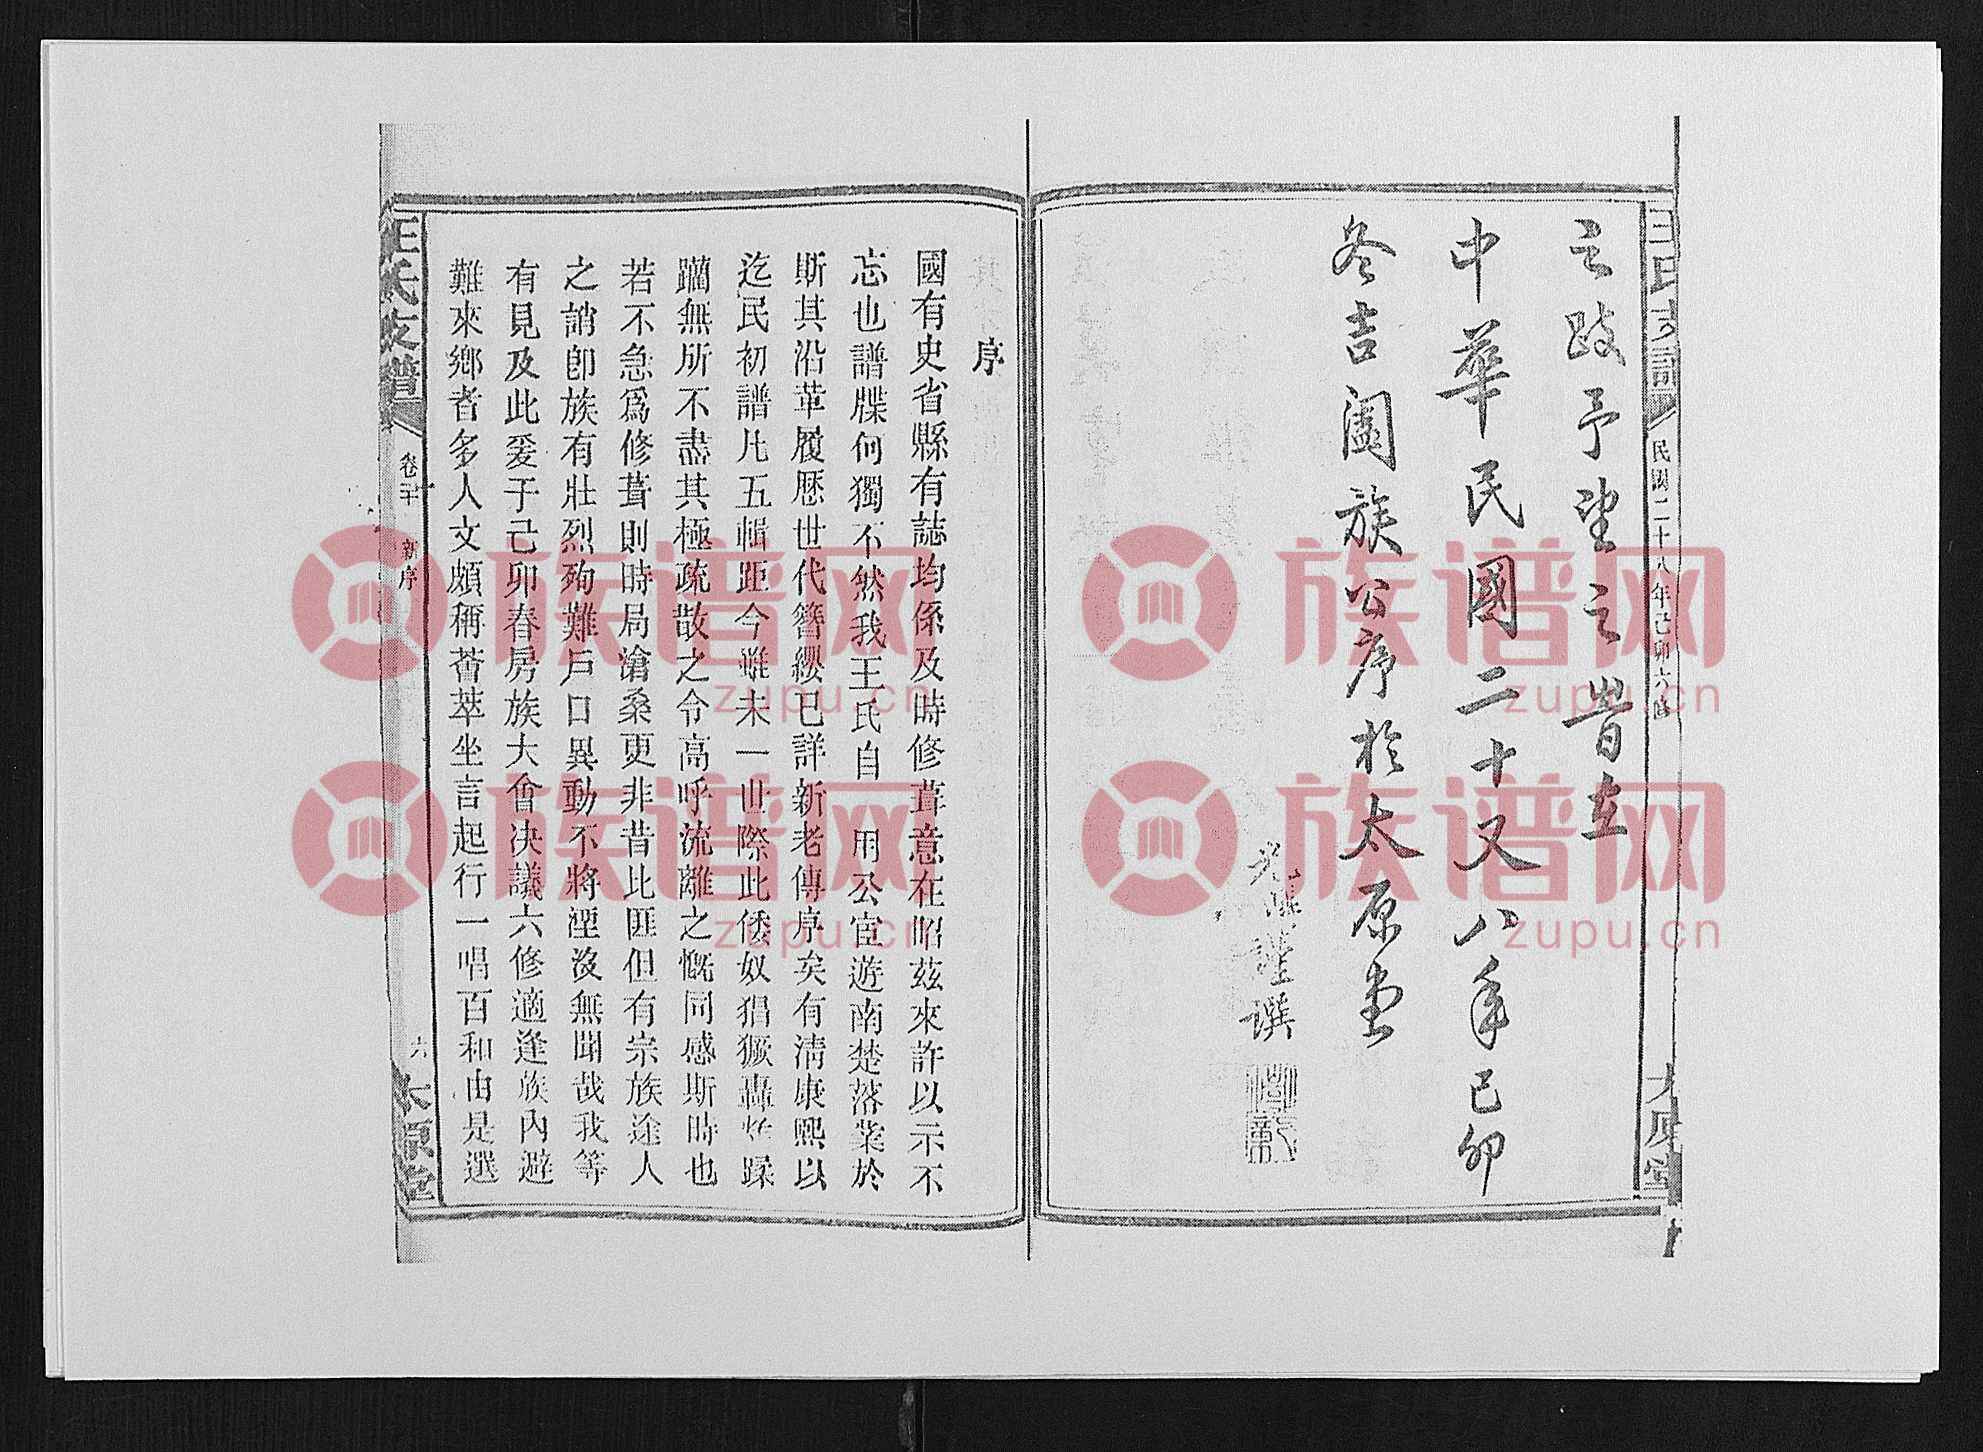 王氏支譜
民國二十八年己卯六修
太原堂
之跂予望之耑立
中華民國二十又八年己卯
冬吉闔族公序於太原堂
謹撰
序
國有史省縣有誌均係及時修葺意在昭茲來許以示不
忘也譜牒何獨不然我王氏自 用公宦遊南楚落業於
斯其沿革履歷世代簪纓已詳新老傳序矣有清康熙以
迄民初譜凡五輯距今雖未一世際此倭奴猖獗轟炸蹂
躪無所不盡其極疏散之令高呼流離之慨同感斯時也
若不急爲修葺則時局滄桑更非昔比匪但有宗族途人
之誚卽族有壯烈殉難戶口異動不將湮沒無聞哉我等
有見及此爰于己卯春房族大會決議六修適逢族內避
難來鄉者多人文頗稱薈萃坐言起行一唱百和由是選
王氏支譜
新序
六
太原堂
族谱网
zupu.cn
族谱网
zupu.cn
族谱网
zupu.cn
族谱网
zupu.cn